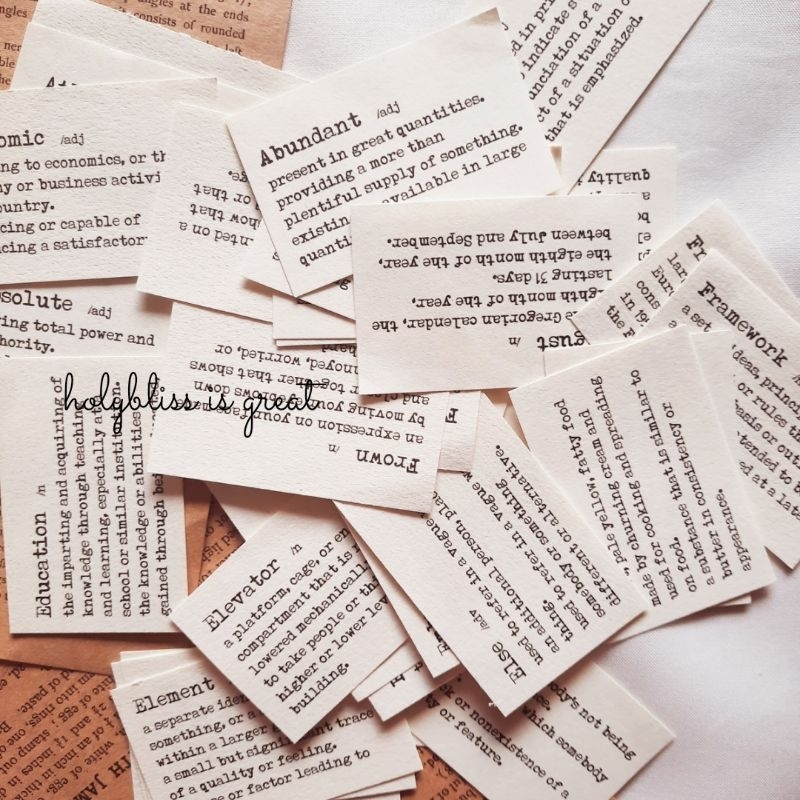 angles at the ends
consists of rounded
the left
indicate s
unciation of a
ct of a situation o
that is emphasized.
omic /adj
ng to economics, or th
ny or business activi
ountry.
cing or capable of
cing a satisfactor
Abundant /adj
present in great quantities.
providing a more than
plentiful supply of something.
available in large
or that
how that
nted on a
quality
gust /n
e Gregorian calendar, the
ghth month of the year,
lasting 31 days.
the eighth month of the year,
between July and September.
solute /adj
ing total power and
hority.
Fr
lar
Eur
cons
in 19
the F
Framework /n
a set
deas, princip
or rules th
asis or out
tended to b
ed at a lat
holybliss is great
Frown /n
an expression on your face made
by moving your eyebrows down
and closer together that shows
annoyed, worried, or
Education /n
the imparting and acquiring of
knowledge through teaching
and learning, especially at an
school or similar institution.
the knowledge or abilities
gained through bei
, pale yellow, fatty food
made by churning cream and
used for cooking and spreading
on food.
a substance that is similar to
butter in consistency or
appearance.
Elevator /n
a platform, cage, or en
compartment that is r
lowered mechanically
to take people or thi
higher or lower lev
building.
Else /adv
used to refer in a vague w
an additional person, pla
thing.
used to refer in a vague w
somebody or something
different or alternative.
Element
a separate iden
something, or a
within a larger g
a small but significant trace
of a quality or feeling.
e or factor leading to
ody's not being
which somebody
or nonexistence of a
ty or feature.